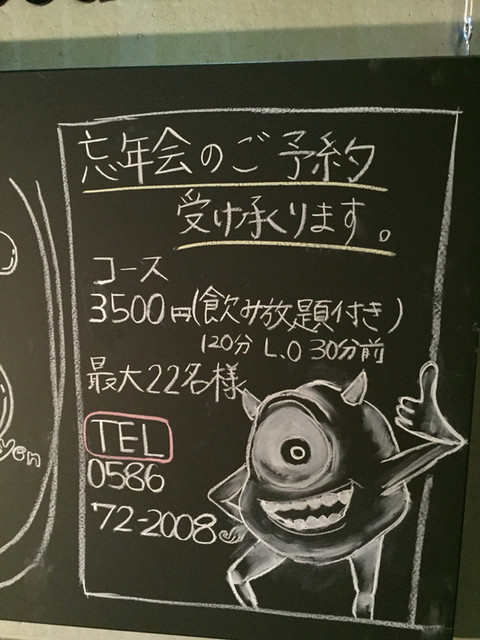 忘年会のご予約
受け承ります。
コース
3500円(飲み放題付き)
120分 L.O 30分前
最大22名様
TEL
0586
72-2008
yen